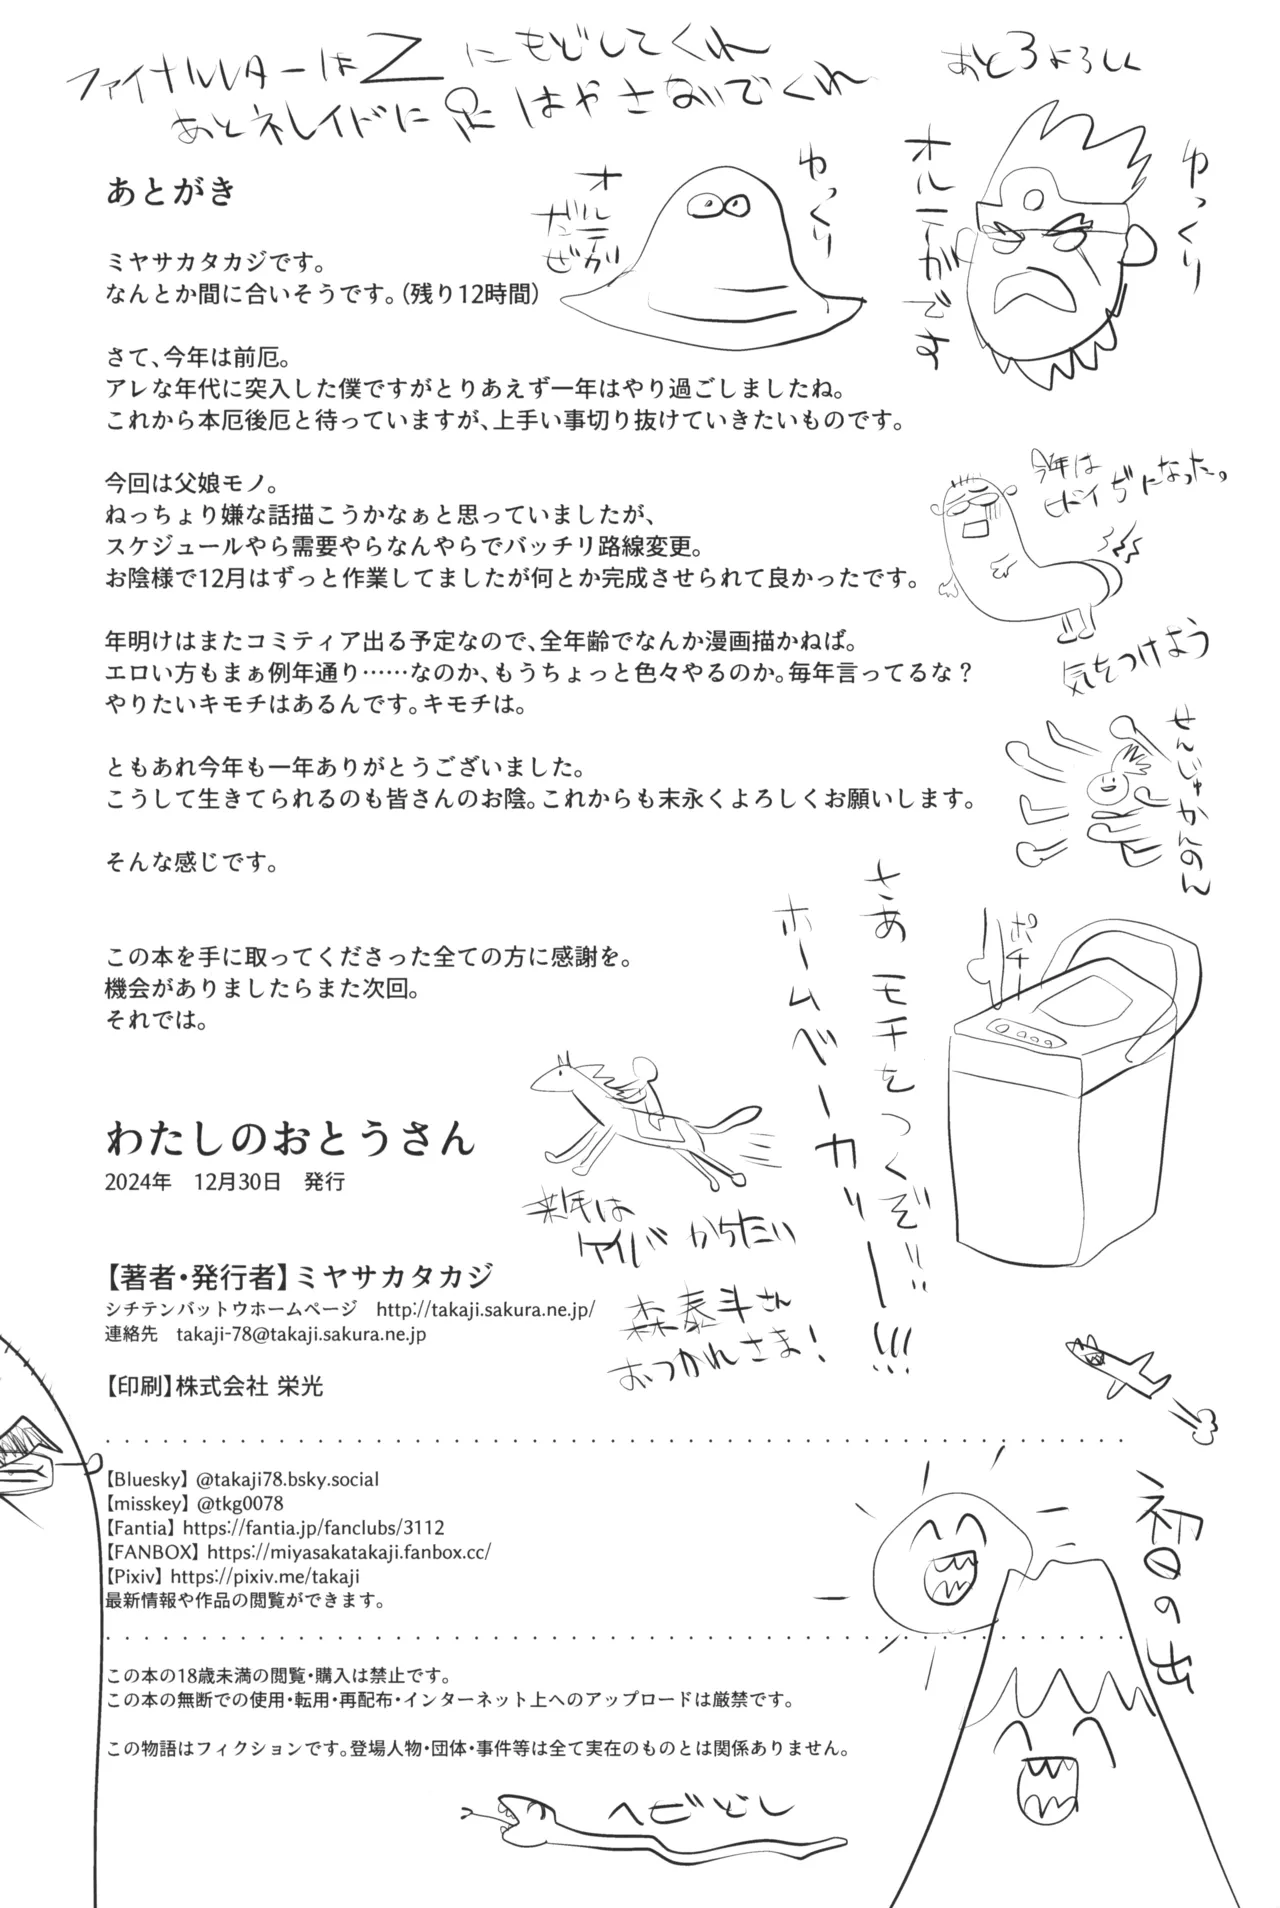 ファイナルレターはZにもどしてくれ
あとネレイドに足はやさないでくれ
あと3よろしく
ゆっくり
オルテガだぜ
ゆっくり
オルテガです
あとがき
ミヤサカタカジです。
なんとか間に合いそうです。(残り12時間)
さて、今年は前厄。
アレな年代に突入した僕ですがとりあえず一年はやり過ごしましたね。
これから本厄後厄と待っていますが、上手い事切り抜けていきたいものです。
今年は
ヒドイぢになった。
気をつけよう
今回は父娘モノ。
ねっちょり嫌な話描こうかなぁと思っていましたが、
スケジュールやら需要やらなんやらでバッチリ路線変更。
お陰様で12月はずっと作業してましたが何とか完成させられて良かったです。
年明けはまたコミティア出る予定なので、全年齢でなんか漫画描かねば。
エロい方もまぁ例年通り……なのか、もうちょっと色々やるのか。毎年言ってるな？
やりたいキモチはあるんです。キモチは。
せんじゅかんのん
ともあれ今年も一年ありがとうございました。
こうして生きてられるのも皆さんのお陰。これからも末永くよろしくお願いします。
そんな感じです。
さあモチをつくぞ
ホームベーカリー!!!
ポチー
この本を手に取ってくださった全ての方に感謝を。
機会がありましたらまた次回。
それでは。
わたしのおとうさん
2024年　12月30日　発行
来年は
ケイバからたい
森泰斗さん
おつかれさま!
【著者・発行者】ミヤサカタカジ
シチテンバットウホームページ　http://takaji.sakura.ne.jp/
連絡先　takaji-78@takaji.sakura.ne.jp
【印刷】株式会社 栄光
【Bluesky】@takaji78.bsky.social
【misskey】@tkg0078
【Fantia】https://fantia.jp/fanclubs/3112
【FANBOX】https://miyasakatakaji.fanbox.cc/
【Pixiv】https://pixiv.me/takaji
最新情報や作品の閲覧ができます。
初日の出
この本の18歳未満の閲覧・購入は禁止です。
この本の無断での使用・転用・再配布・インターネット上へのアップロードは厳禁です。
この物語はフィクションです。登場人物・団体・事件等は全て実在のものとは関係ありません。
ヘビどし